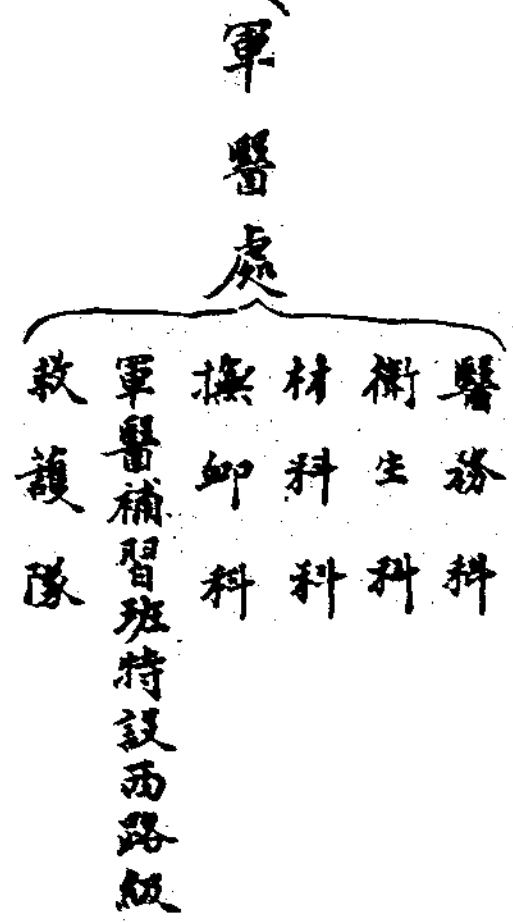 軍醫處
醫務科
衛生科
材料科
撫卹科
軍醫補習班特設西路級
救護隊